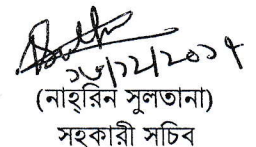 ১৮/১২/২০১৭
(নাহ্‌রিন সুলতানা)
সহকারী সচিব